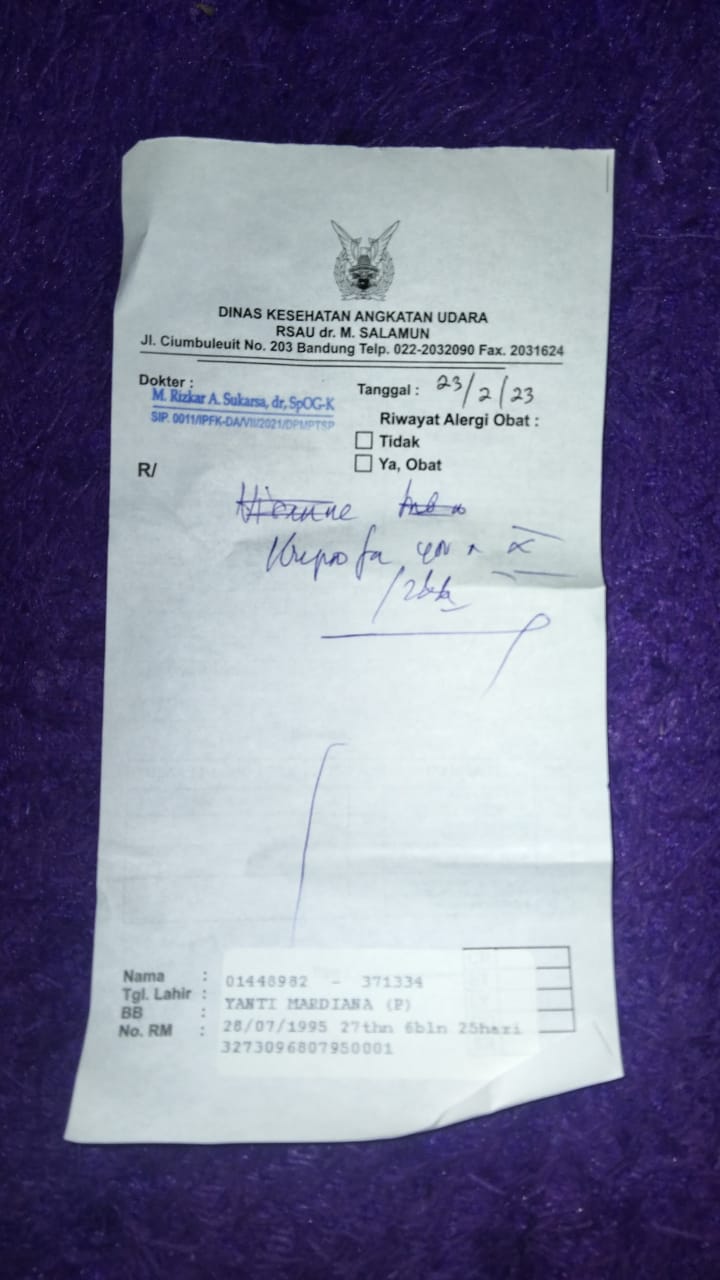 DINAS KESEHATAN ANGKATAN UDARA
RSAU dr. M. SALAMUN
Jl. Ciumbuleuit No. 203 Bandung Telp. 022-2032090 Fax. 2031624
Dokter :
M. Rizkar A. Sukarsa, dr, SpOG-K
SIP. 0011/IPFK-DA/VII/2021/DPMPTSP
Tanggal : 23/2/23
Riwayat Alergi Obat :
Tidak
Ya, Obat
R/
Nama :
Tgl. Lahir :
BB :
No. RM :
01448982 - 371334
YANTI MARDIANA (P)
28/07/1995 27thn 6bln 25hari
3273096807950001